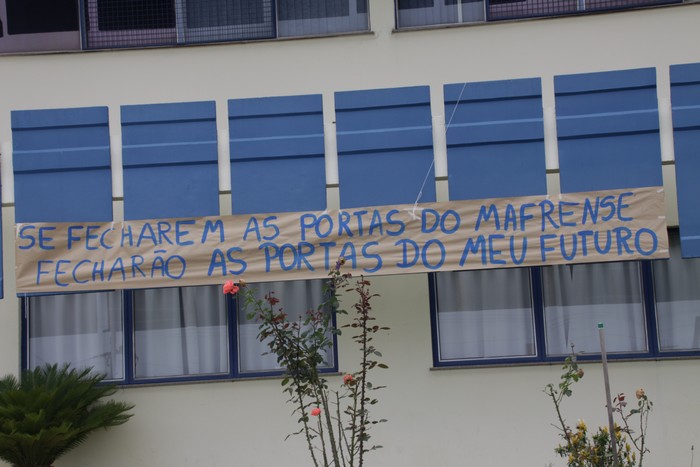 SE FECHAREM AS PORTAS DO MAFRENSE
FECHARÃO AS PORTAS DO MEU FUTURO